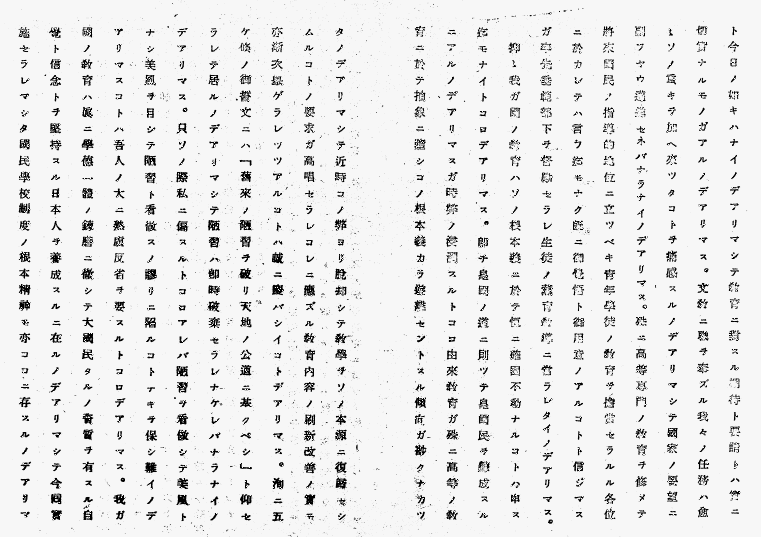 ト今日ノ如キハナイノデアリマシテ教育ニ對スル期待ト要請トハ實ニ
切實ナルモノガアルノデアリマス。文敎ニ職ヲ奉ズル我々ノ任務ハ愈
〻ソノ重キヲ加ヘ來ツタコトヲ痛感スルノデアリマシテ國家ノ要望ニ
副フヤウ邁進セネバナラナイノデアリマス。殊ニ高等專門ノ敎育ヲ修メテ
將來國民ノ指導的地位ニ立ツベキ靑年學徒ノ敎育ヲ擔當セラルル各位
ニ於カレテハ言ヲ俟モナク旣ニ御覺悟ト御用意ノアルコトト信ジマス
ガ率先垂範部下ヲ督勵セラレ生徒ノ薰育敎導ニ當ラレタイノデアリマス。
抑〻我ガ國ノ敎育ハソノ根本義ニ於テ恒ニ確固不動ナルコトハ申ス
迄モナイトコロデアリマス。卽チ皇國ノ道ニ則ツテ皇國民ヲ鍊成スル
ニアルノデアリマスガ時弊ノ浸潤スルトコロ由來敎育ガ殊ニ高等ノ敎
育ニ於テ抽象ニ墮シコノ根本義カラ遊離セントスル傾向ガ尠クナカツ
タノデアリマシテ近時コノ弊ヨリ脫却シテ敎學ヲソノ本源ニ復歸セシ
ムルコトノ要求ガ高唱セラレコレニ應ズル敎育內容ノ刷新改善ノ實モ
亦漸次擧ゲラレツツアルコトハ誠ニ慶バシイコトデアリマス。洵ニ五
ケ條ノ御誓文ニハ「舊來ノ陋習ヲ破リ天地ノ公道ニ基クベシ」ト仰セ
ラレテ居ルノデアリマシテ陋習ハ卽時破棄セラレナケレバナラナイノ
デアリマス。只ソノ際私ニ偏スルトコロアレバ陋習ヲ看做シテ美風ト
ナシ美風ヲ目シテ陋習ト看做スノ謬リニ陷ルコトナキヲ保シ難イノデ
アリマスコトハ吾人ノ大ニ熟慮反省ヲ要スルトコロデアリマス。我ガ
國ノ敎育ハ眞ニ學德一體ノ鍊磨ニ徹シテ大國民タルノ資質ヲ有スル自
覺ト信念トヲ堅持スル日本人ヲ養成スルニ在ルノデアリマシテ今囘實
施セラレマシタ國民學校制度ノ根本精神モ亦ココニ存スルノデアリマ